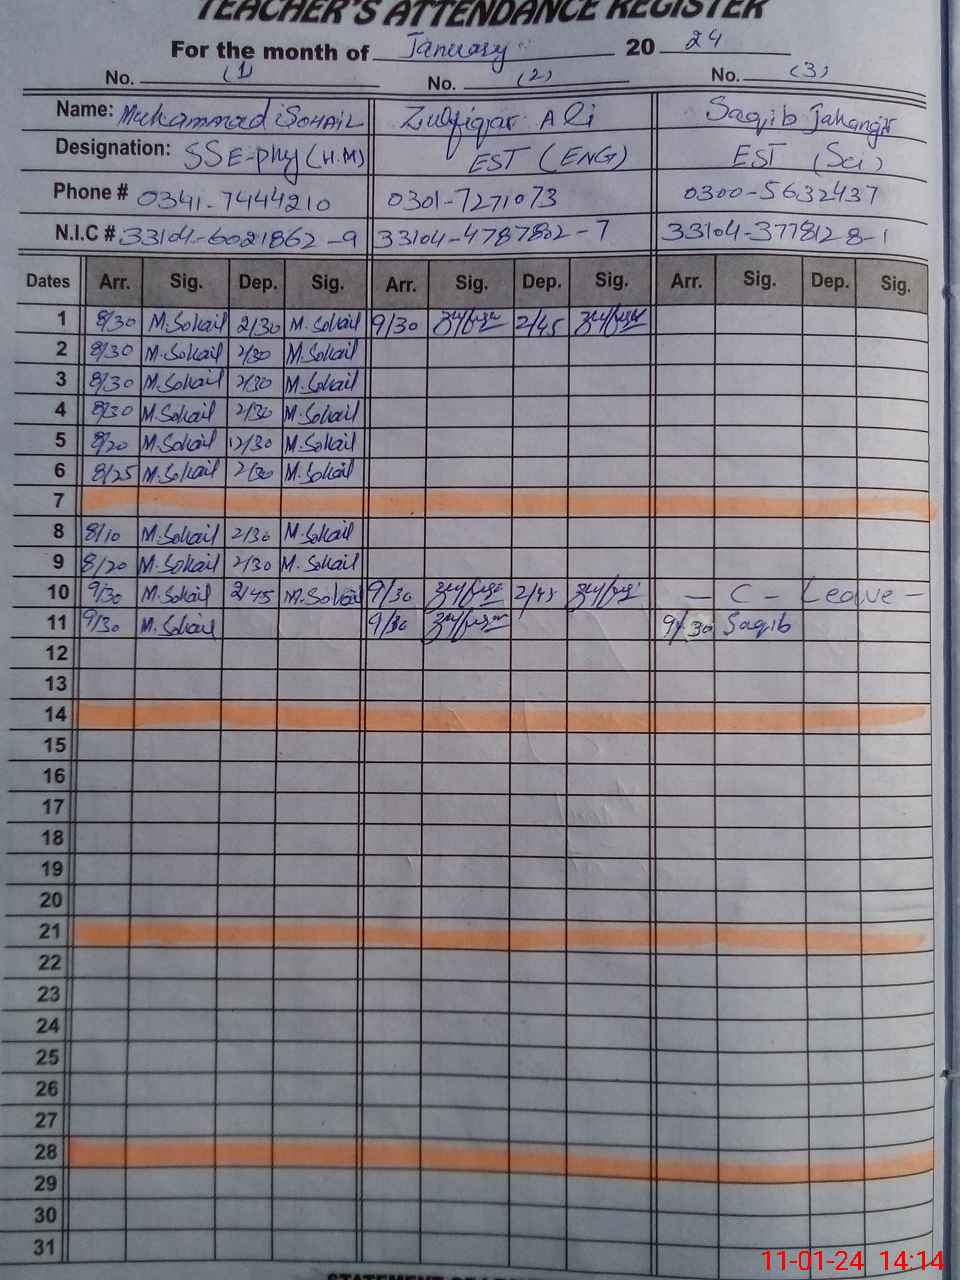 TEACHER'S ATTENDANCE REGISTER
For the month of January 20 24
No. (1) No. (2) No. (3)
Name: Muhammad SOHAIL Zulfiqar Ali Saqib Jahangir
Designation: SSE-phy (H.M) EST (ENG) EST (Sci)
Phone # 0341-7444210 0301-7271073 0300-5632437
N.I.C # 33104-6021862-9 33104-4787802-7 33104-3778128-1
Dates Arr. Sig. Dep. Sig. Arr. Sig. Dep. Sig. Arr. Sig. Dep. Sig.
1 8/30 M.Sohail 2/30 M.Sohail 9/30 2/45
2 8/30 M.Sohail 2/30 M.Sohail
3 8/30 M.Sohail 2/30 M.Sohail
4 8/30 M.Sohail 2/30 M.Sohail
5 8/20 M.Sohail 12/30 M.Sohail
6 8/25 M.Sohail 2/30 M.Sohail
7
8 8/10 M.Sohail 2/30 M.Sohail
9 8/20 M.Sohail 2/30 M.Sohail
10 9/30 M.Sohail 2/45 M.Sohail 9/30 2/45 - C - Leave -
11 9/30 M.Sohail 9/30 9/30 Saqib
12
13
14
15
16
17
18
19
20
21
22
23
24
25
26
27
28
29
30
31
11-01-24 14:14